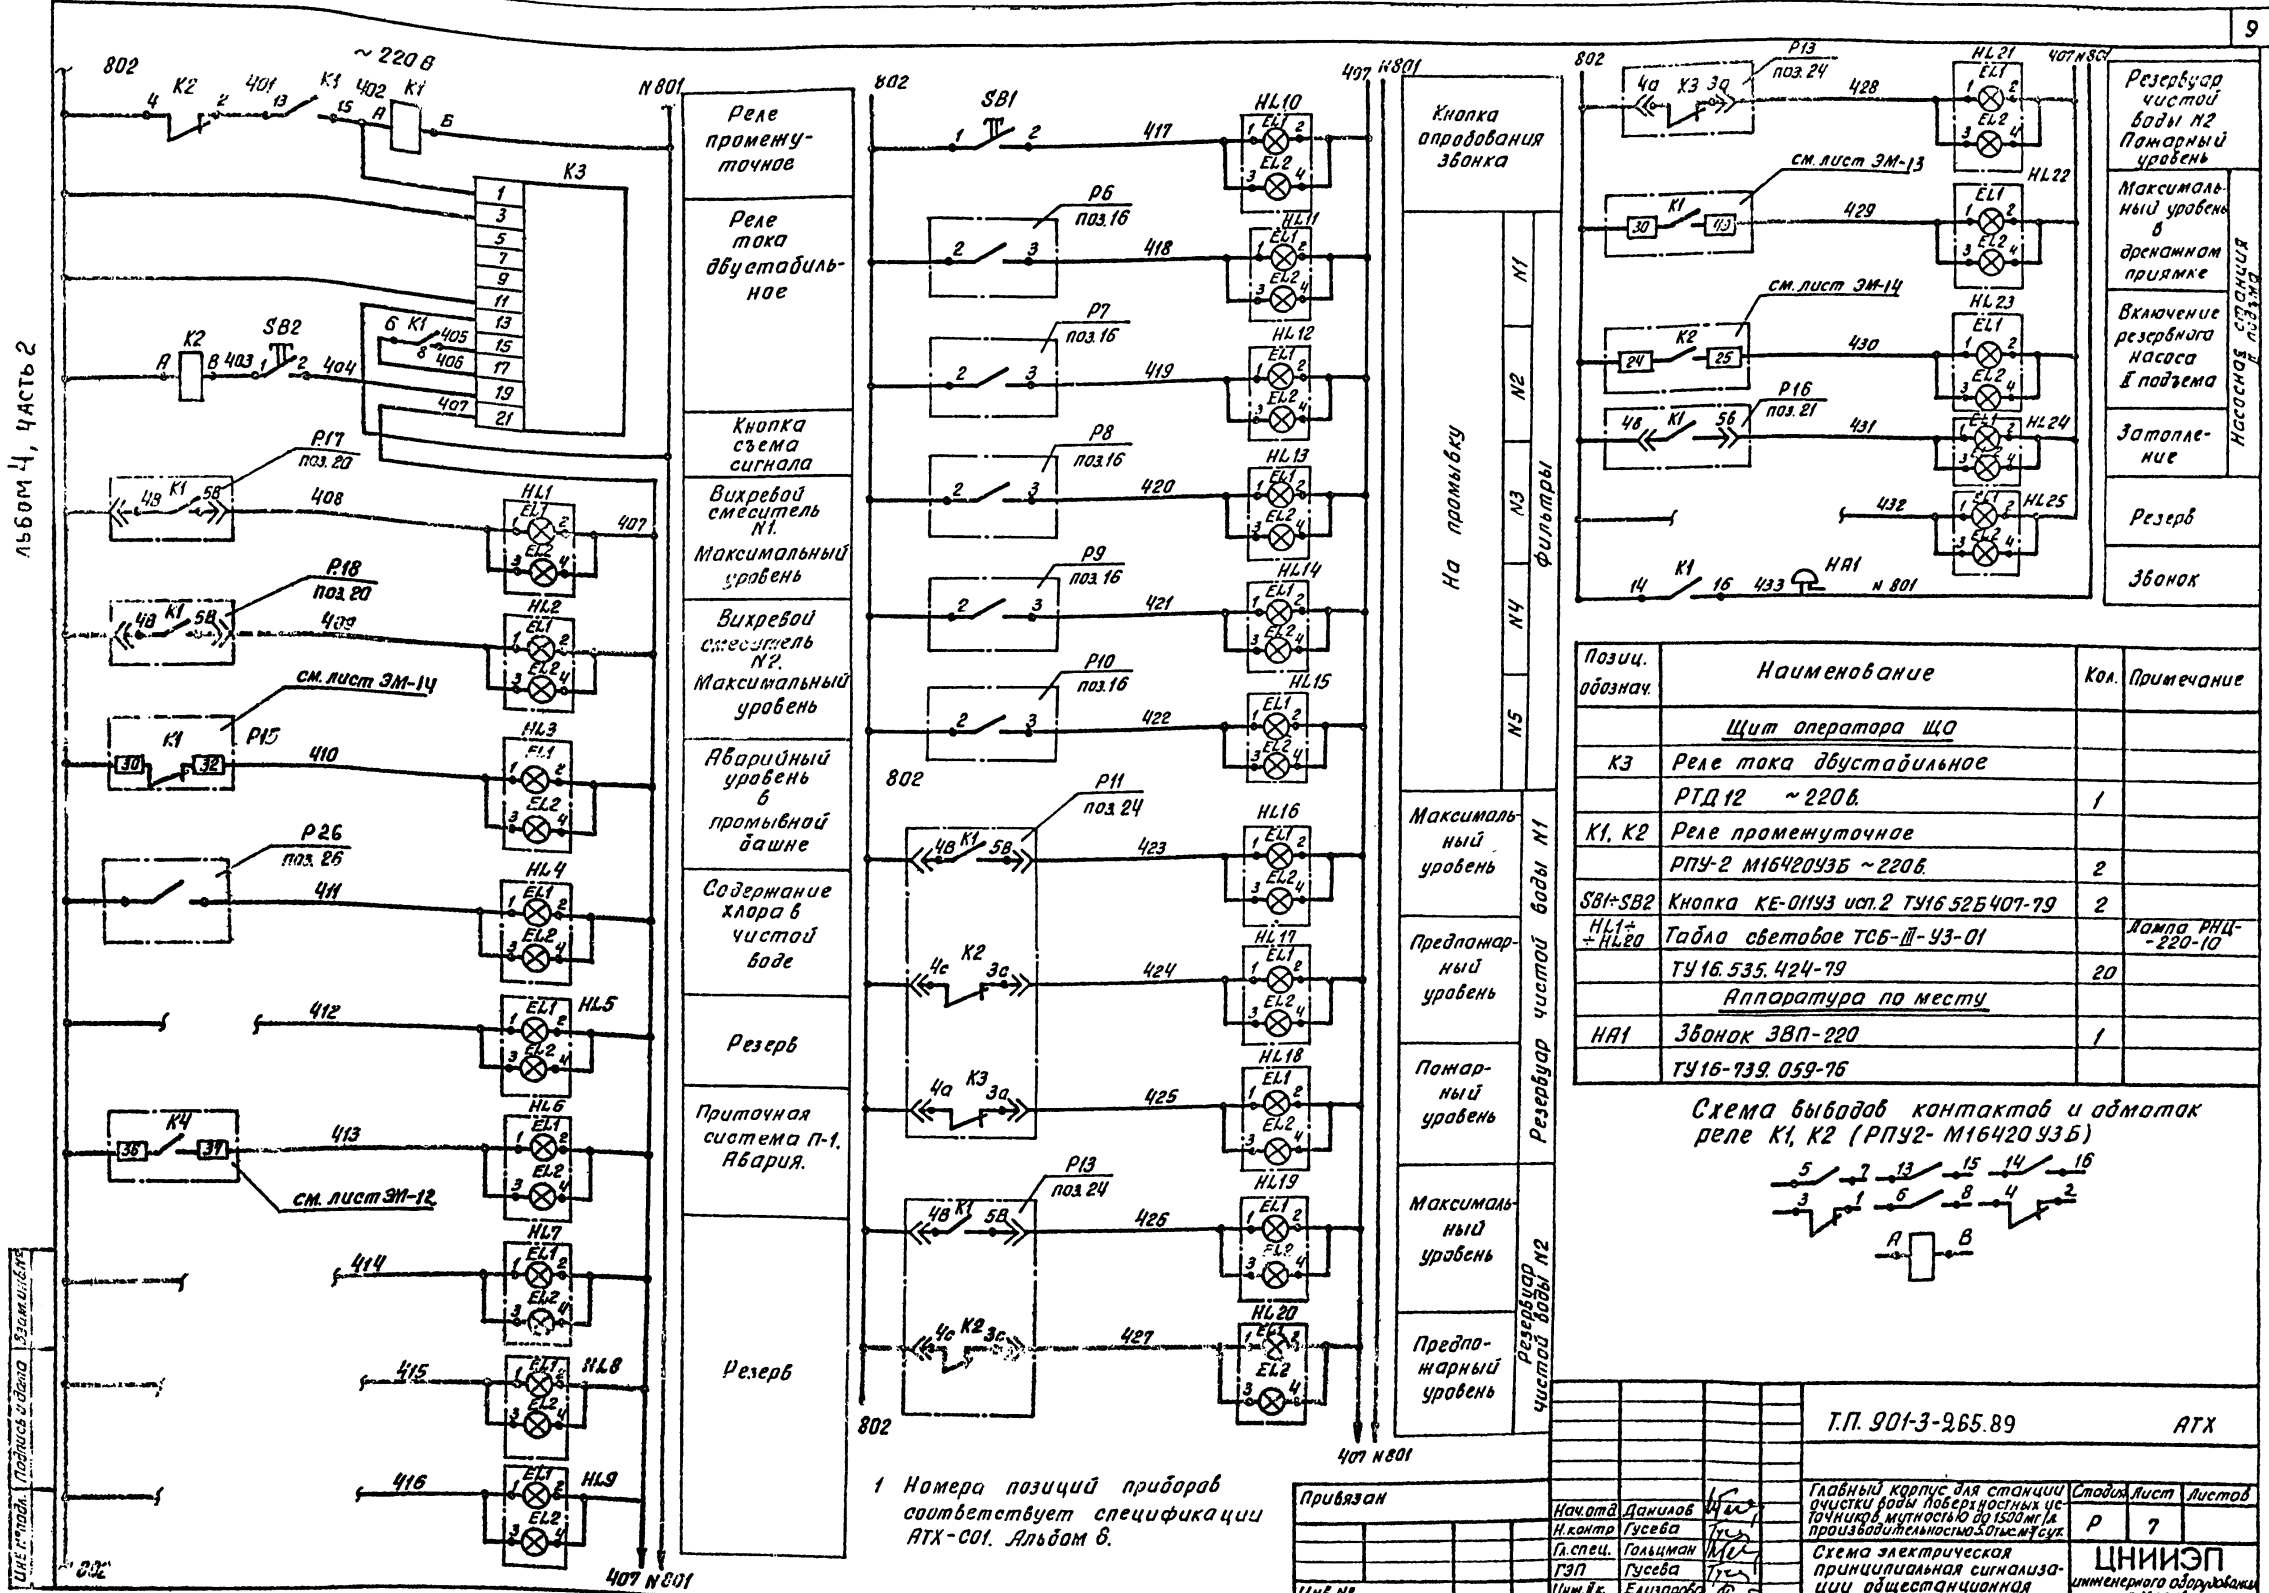 9
льбом 4, часть 2
802
~ 220 В
4 К2 2 401 13 К1 15 402 А К1 Б
N 801
К3
1
3
5
7
9
11
13
15
17
19
21
6 К1 8 405
406
А К2 В 403 1 SB2 2 404
407
Р17
поз.20
4В К1 5В 408
HL1
EL1
1 2 407
EL2
3 4
Р18
поз.20
4В К1 5В 409
HL2
EL1
1 2
EL2
3 4
см. лист ЭМ-14
К1 Р15
30 32 410
HL3
EL1
1 2
EL2
3 4
Р26
поз. 26
411
HL4
EL1
1 2
EL2
3 4
412
EL1 HL5
1 2
EL2
3 4
К4
36 37 413
см. лист ЭМ-12
HL6
EL1
1 2
EL2
3 4
414
HL7
EL1
1 2
EL2
3 4
415
EL1 HL8
1 2
EL2
3 4
416
EL1 HL9
1 2
EL2
3 4
802
407 N 801
Реле
промежу-
точное
Реле
тока
двустабиль-
ное
Кнопка
съема
сигнала
Вихревой
смеситель
N1.
Максимальный
уровень
Вихревой
смеситель
N2.
Максимальный
уровень
Аварийный
уровень
в
промывной
башне
Содержание
хлора в
чистой
воде
Резерв
Приточная
система П-1.
Авария.
Резерв
802
407 N801
SB1
1 2 417
HL10
EL1
1 2
EL2
3 4
Р6
поз.16
2 3 418
HL11
EL1
1 2
EL2
3 4
Р7
поз.16
2 3 419
HL12
EL1
1 2
EL2
3 4
Р8
поз.16
2 3 420
HL13
EL1
1 2
EL2
3 4
Р9
поз.16
2 3 421
HL14
EL1
1 2
EL2
3 4
Р10
поз.16
2 3 422
HL15
EL1
1 2
EL2
3 4
802
Р11
поз.24
4В К1 5В 423
HL16
EL1
1 2
EL2
3 4
4с К2 3с 424
HL17
EL1
1 2
EL2
3 4
4а К3 3а 425
HL18
EL1
1 2
EL2
3 4
Р13
поз.24
4В К1 5В 426
HL19
EL1
1 2
EL2
3 4
4с К2 3с 427
HL20
EL1
1 2
EL2
3 4
802
407 N801
1 Номера позиций приборов
соответствует спецификации
АТХ-С01. Альбом 6.
Кнопка
опробования
звонка
На промывку
N1
N2
N3
N4
N5
фильтры
Максималь-
ный
уровень
Предпожар-
ный
уровень
Пожар-
ный
уровень
Резервуар чистой воды N1
Максималь-
ный
уровень
Предпо-
жарный
уровень
Резервуар
чистой воды N2
802
407 N801
Р13
поз.24
4а К3 3а 428
HL21
EL1
1 2
EL2
3 4
см. лист ЭМ-13
30 К1 43 429
HL22
EL1
1 2
EL2
3 4
см. лист ЭМ-14
24 К2 25 430
HL23
EL1
1 2
EL2
3 4
Р16
поз.21
4В К1 5б 431
EL1 HL24
1 2
EL2
3 4
432
EL1 HL25
1 2
EL2
3 4
14 К1 16 433 НА1 N 801
Резервуар
чистой
воды N2
Пожарный
уровень
Максималь-
ный уровень
в
дренажном
приямке
Включение
резервного
насоса
II подъема
Затопле-
ние
Насосная станция
II подъема
Резерв
Звонок
Позиц.
обознач. Наименование Кол. Примечание
Щит оператора ЩО
К3 Реле тока двустабильное
РТД 12 ~ 220 в. 1
К1, К2 Реле промежуточное
РПУ-2 М16420У3Б ~ 220в. 2
SB1÷SB2 Кнопка КЕ-011У3 исп.2 ТУ16 52Б 407-79 2
HL1÷
÷HL20 Табло световое ТСБ-III-У3-01 Лампа РНЦ-
-220-10
ТУ 16. 535. 424-79 20
Аппаратура по месту
НА1 Звонок ЗВП-220 1
ТУ16-739. 059-76
Схема выводов контактов и обмоток
реле К1, К2 (РПУ2-М16420 У3Б)
5 7 13 15 14 16
3 1 6 8 4 2
А В
Т.П. 901-3-265.89 АТХ
Привязан
Нач.отд Данилов
Н.контр Гусева
Гл.спец. Гольцман
ГЭП Гусева
Инж.IIк. Елизарова
Инв.N
Главный корпус для станции
очистки воды поверхностных ис-
точников мутностью до 1500мг/л
производительностью 5.0тыс.м³/сут.
Схема электрическая
принципиальная сигнализа-
ции общестанционная
Стадия Лист Листов
Р 7
ЦНИИЭП
инженерного оборудования
Инв.N°подл. Подпись и дата Взам.инв.N°